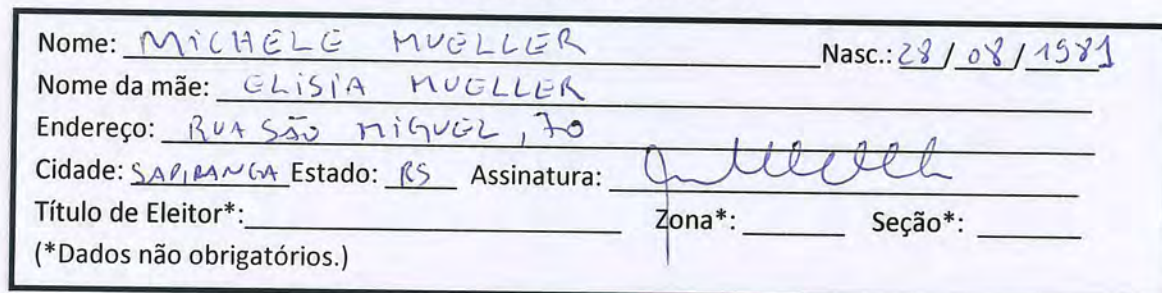 Nome: MICHELE MUELLER Nasc.: 28/08/1981
Nome da mãe: ELISIA MUELLER
Endereço: RUA SÃO MIGUEL, 70
Cidade: SAPIRANGA Estado: RS Assinatura:
Título de Eleitor*: Zona*: Seção*:
(*Dados não obrigatórios.)